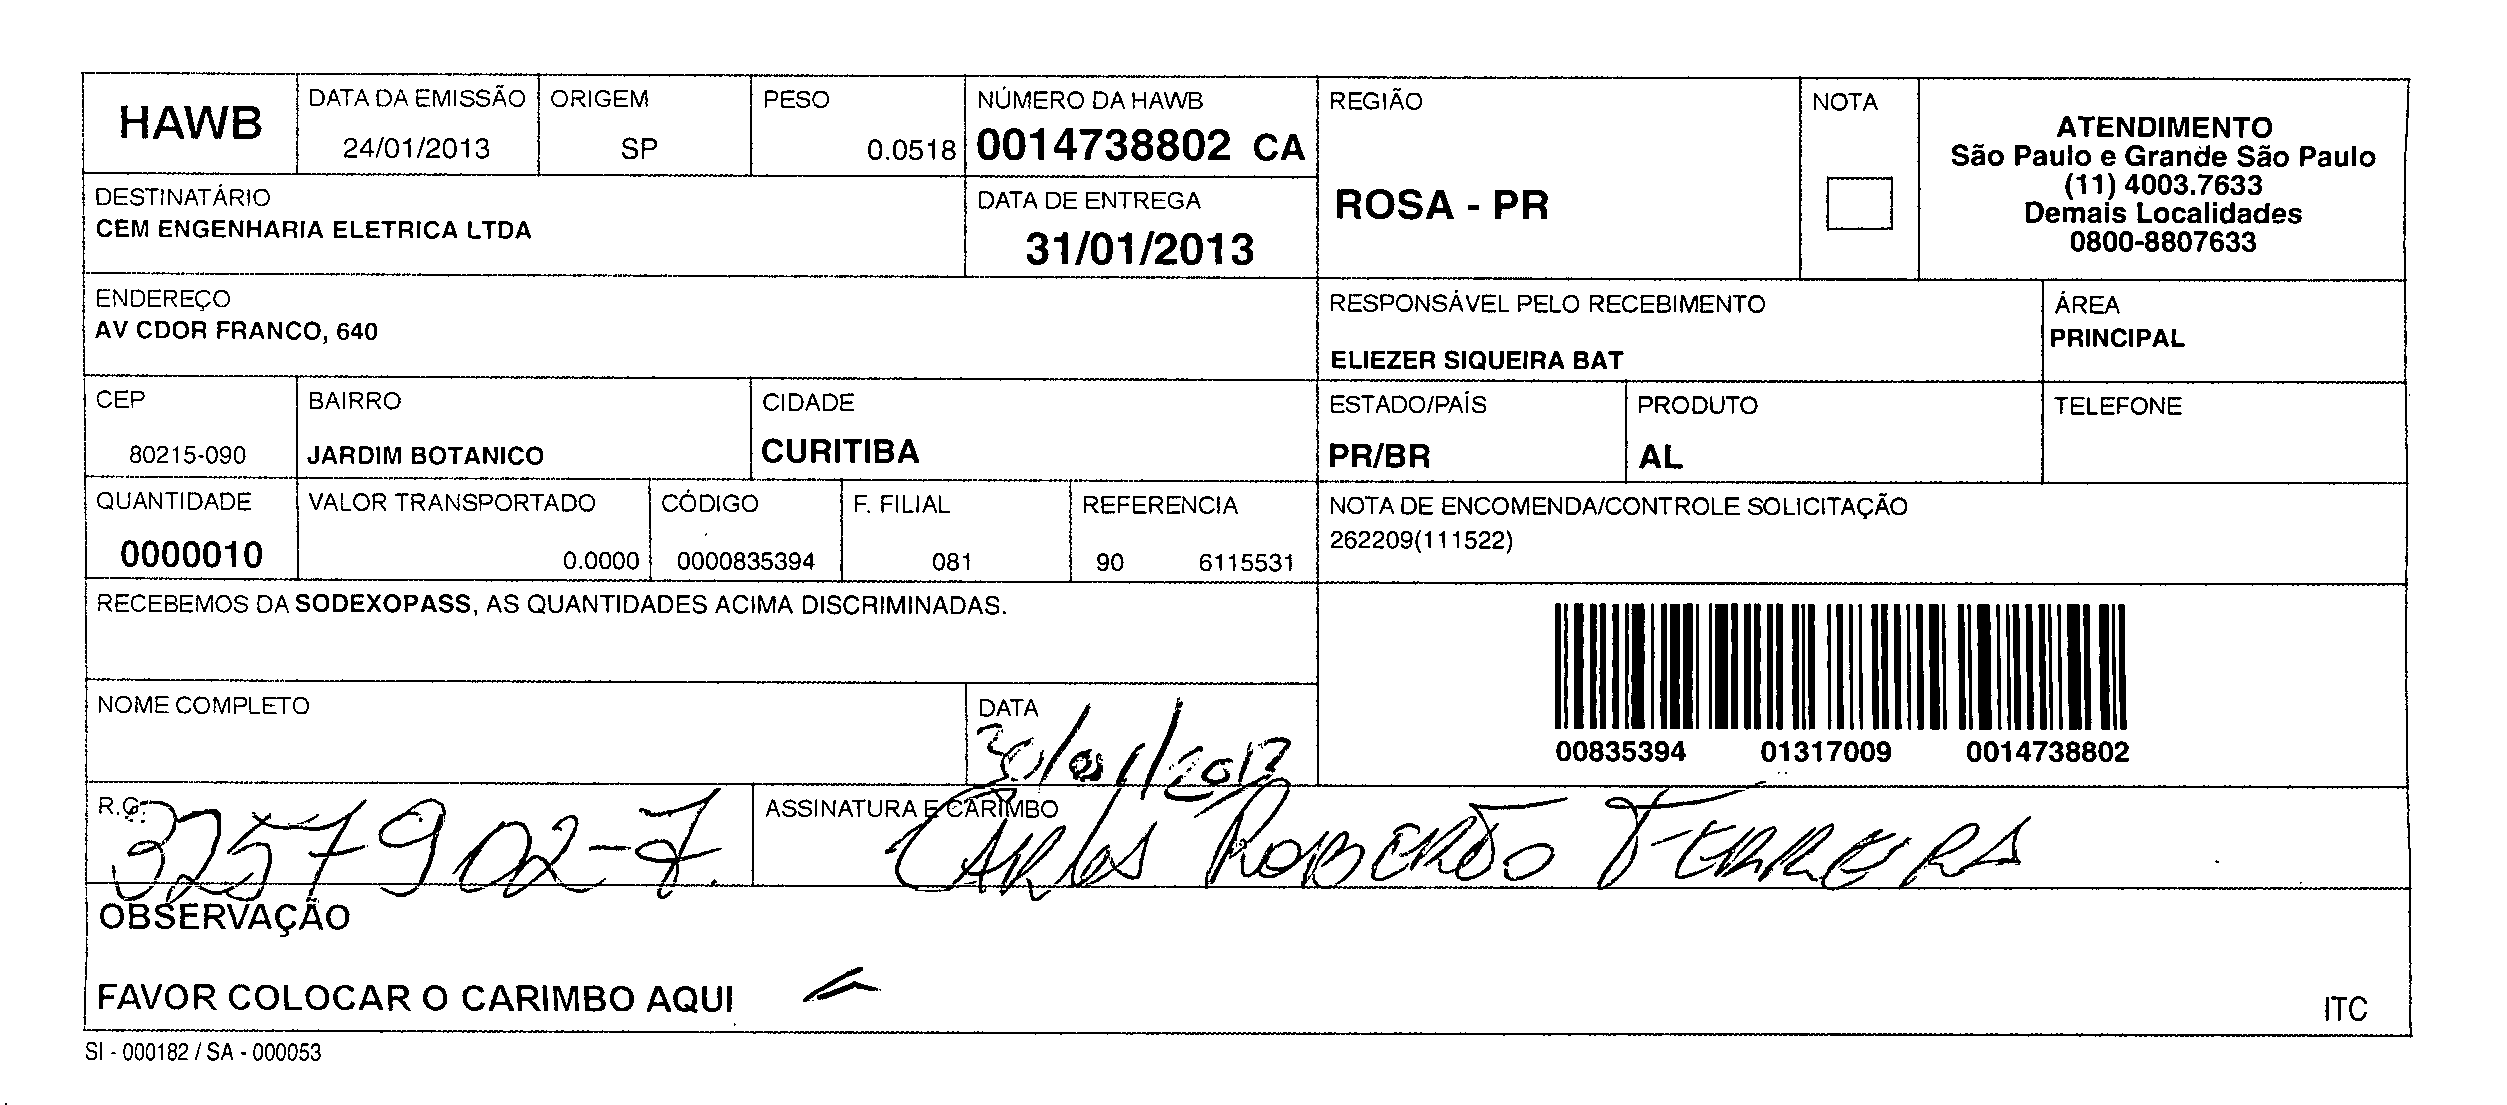 HAWB
DATA DA EMISSÃO
24/01/2013
ORIGEM
SP
PESO
0.0518
NÚMERO DA HAWB
0014738802 CA
REGIÃO
ROSA - PR
NOTA
ATENDIMENTO
São Paulo e Grande São Paulo
(11) 4003.7633
Demais Localidades
0800-8807633
DESTINATÁRIO
CEM ENGENHARIA ELETRICA LTDA
DATA DE ENTREGA
31/01/2013
ENDEREÇO
AV CDOR FRANCO, 640
RESPONSÁVEL PELO RECEBIMENTO
ELIEZER SIQUEIRA BAT
ÁREA
PRINCIPAL
CEP
80215-090
BAIRRO
JARDIM BOTANICO
CIDADE
CURITIBA
ESTADO/PAÍS
PR/BR
PRODUTO
AL
TELEFONE
QUANTIDADE
0000010
VALOR TRANSPORTADO
0.0000
CÓDIGO
0000835394
F. FILIAL
081
REFERENCIA
90 6115531
NOTA DE ENCOMENDA/CONTROLE SOLICITAÇÃO
262209(111522)
RECEBEMOS DA SODEXOPASS, AS QUANTIDADES ACIMA DISCRIMINADAS.
00835394 01317009 0014738802
NOME COMPLETO
DATA
30/01/2013
R.G.
3257902-7.
ASSINATURA E CARIMBO
CARLOS ROBERTO FERREIRA
OBSERVAÇÃO
FAVOR COLOCAR O CARIMBO AQUI
ITC
SI - 000182 / SA - 000053